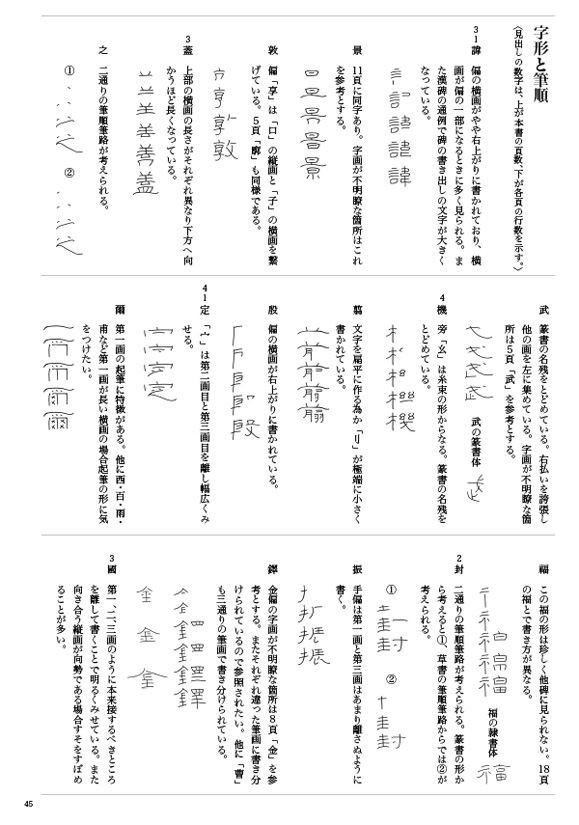 字形と筆順
〈見出しの数字は、上が本書の頁数、下が各頁の行数を示す。〉
31諱
偏の横画がやや右上がりに書かれており、横
画が偏の一部になるときに多く見られる。ま
た漢碑の通例で碑の書き出しの文字が大きく
なっている。
景
11頁に同字あり。字画が不明瞭な箇所はこれ
を参考とする。
敦
偏「享」は「口」の縦画と「子」の横画を繋
げている。5頁「廓」も同様である。
3蓋
上部の横画の長さがそれぞれ異なり下方へ向
かうほど長くなっている。
之
二通りの筆順筆路が考えられる。
①
②
武
篆書の名残をとどめている。右払いを誇張し
他の画を左に集めている。字画が不明瞭な箇
所は5頁「武」を参考とする。
武の篆書体
4機
旁「幺」は糸束の形からなる。篆書の名残を
とどめている。
翦
文字を扁平に作る為か「刂」が極端に小さく
書かれている。
殷
偏の横画が右上がりに書かれている。
41定
「宀」は第二画目と第三画目を離し幅広くみ
せる。
爾
第一画の起筆に特徴がある。他に西・百・雨・
甫など第一画が長い横画の場合起筆の形に気
をつけたい。
福
この福の形は珍しく他碑に見られない。18頁
の福とで書き方が異なる。
福の隷書体
2封
二通りの筆順筆路が考えられる。篆書の形か
ら考えると①、草書の筆順筆路からでは②が
考えられる。
①
②
振
手偏は第一画と第三画はあまり離さぬように
書く。
鐸
金偏の字画が不明瞭な箇所は8頁「金」を参
考とする。またそれぞれ違った筆画に書き分
けられているので参照されたい。他に「曹」
も三通りの筆画で書き分けられている。
3國
第一、二、三画のように本来接するべきところ
を離して書くことで明るくみせている。また
向き合う縦画が向勢である場合すそをすぼめ
ることが多い。
45